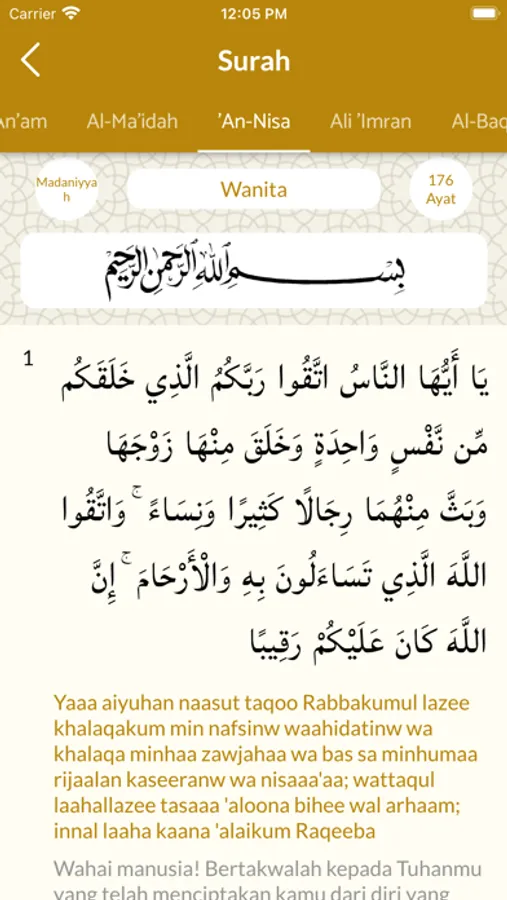 Carrier 12:05 PM
Surah
An'am Al-Ma'idah 'An-Nisa Ali 'Imran Al-Baq
Madaniyya
h
Wanita
176
Ayat
بِسْمِ اللَّهِ الرَّحْمَٰنِ الرَّحِيمِ
1
يَا أَيُّهَا النَّاسُ اتَّقُوا رَبَّكُمُ الَّذِي خَلَقَكُم
مِّن نَّفْسٍ وَاحِدَةٍ وَخَلَقَ مِنْهَا زَوْجَهَا
وَبَثَّ مِنْهُمَا رِجَالًا كَثِيرًا وَنِسَاءً ۚ وَاتَّقُوا
اللَّهَ الَّذِي تَسَاءَلُونَ بِهِ وَالْأَرْحَامَ ۚ إِنَّ
اللَّهَ كَانَ عَلَيْكُمْ رَقِيبًا
Yaaa aiyuhan naasut taqoo Rabbakumul lazee
khalaqakum min nafsinw waahidatinw wa
khalaqa minhaa zawjahaa wa bas sa minhumaa
rijaalan kaseeranw wa nisaaa'aa; wattaqul
laahallazee tasaaa 'aloona bihee wal arhaam;
innal laaha kaana 'alaikum Raqeeba
Wahai manusia! Bertakwalah kepada Tuhanmu
yang telah menciptakan kamu dari diri yang